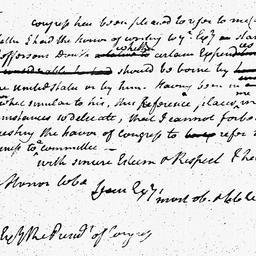 congress has been pleased to refer to me
I had the honor of writing to yr Exy
Jeffersons Doubt whether certain Expend
should be borne by
united States or by him. Having been in
similar to his, this Reference places
cumstances so delicate, that I cannot forbe
the honor of congress to refer
to a committee –
with sincere Esteem & Respect I ha
Honor to be
Your Exys
most ob. &
Exy the Presidt of Congress